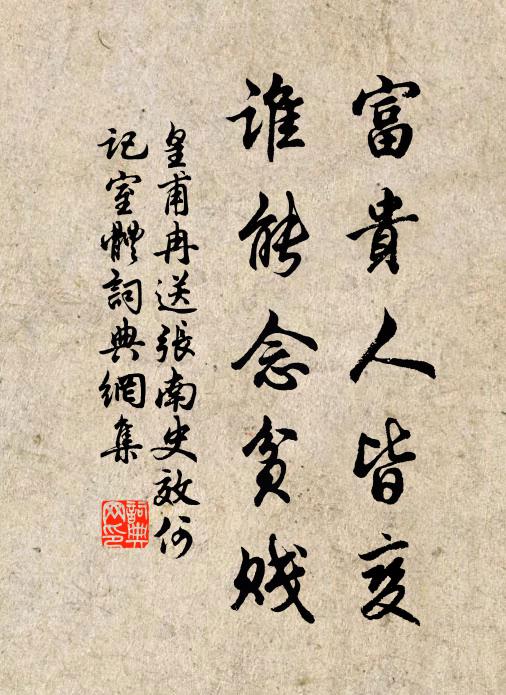 富貴人皆变
谁能念貧贱
皇甫冉送張南史效何
記室體詞典網集
詞典
网印